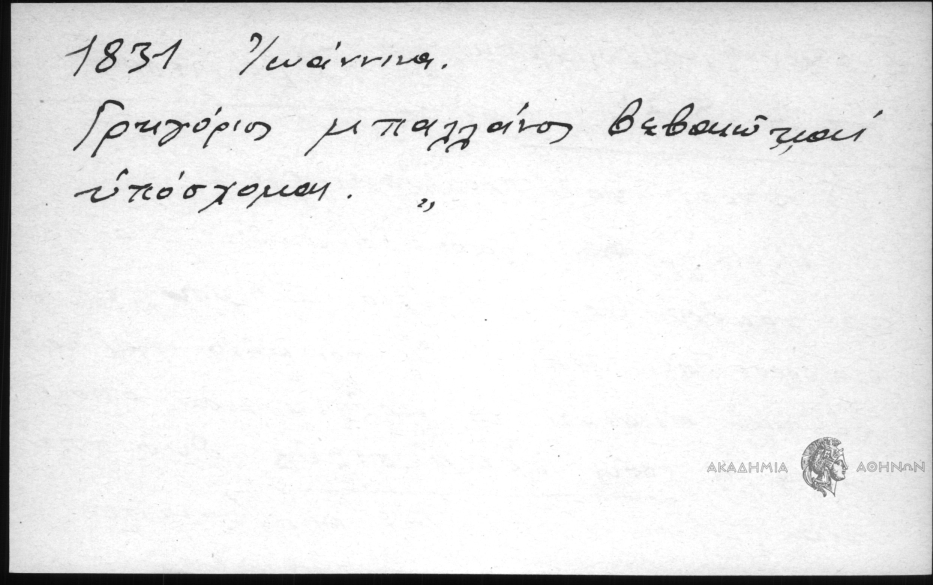 1831 Ἰωάννινα.
Γρηγόριος μπαλλάνος βεβαιῶ καί
ὑπόσχομαι. "
ΑΚΑΔΗΜΙΑ ΑΘΗΝΩΝ